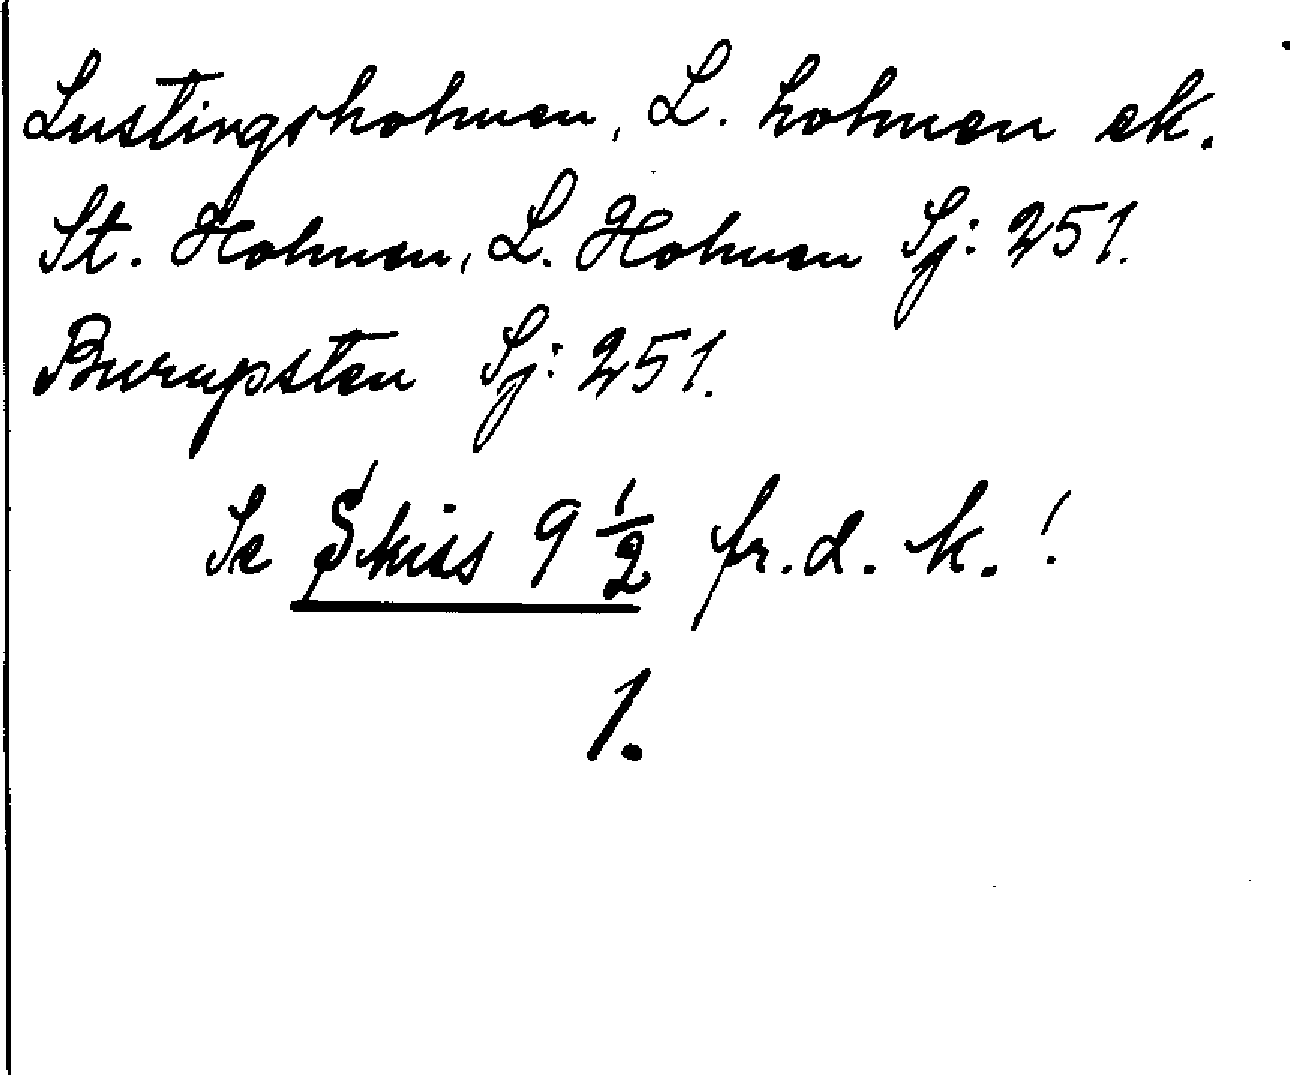 Lustingsholmen, L. holmen ek.
St. Holmen, L. Holmen Sj: 251.
Burupsten Sj: 251.
Se Skiss 9 1/2 fr. d. k.!
1.